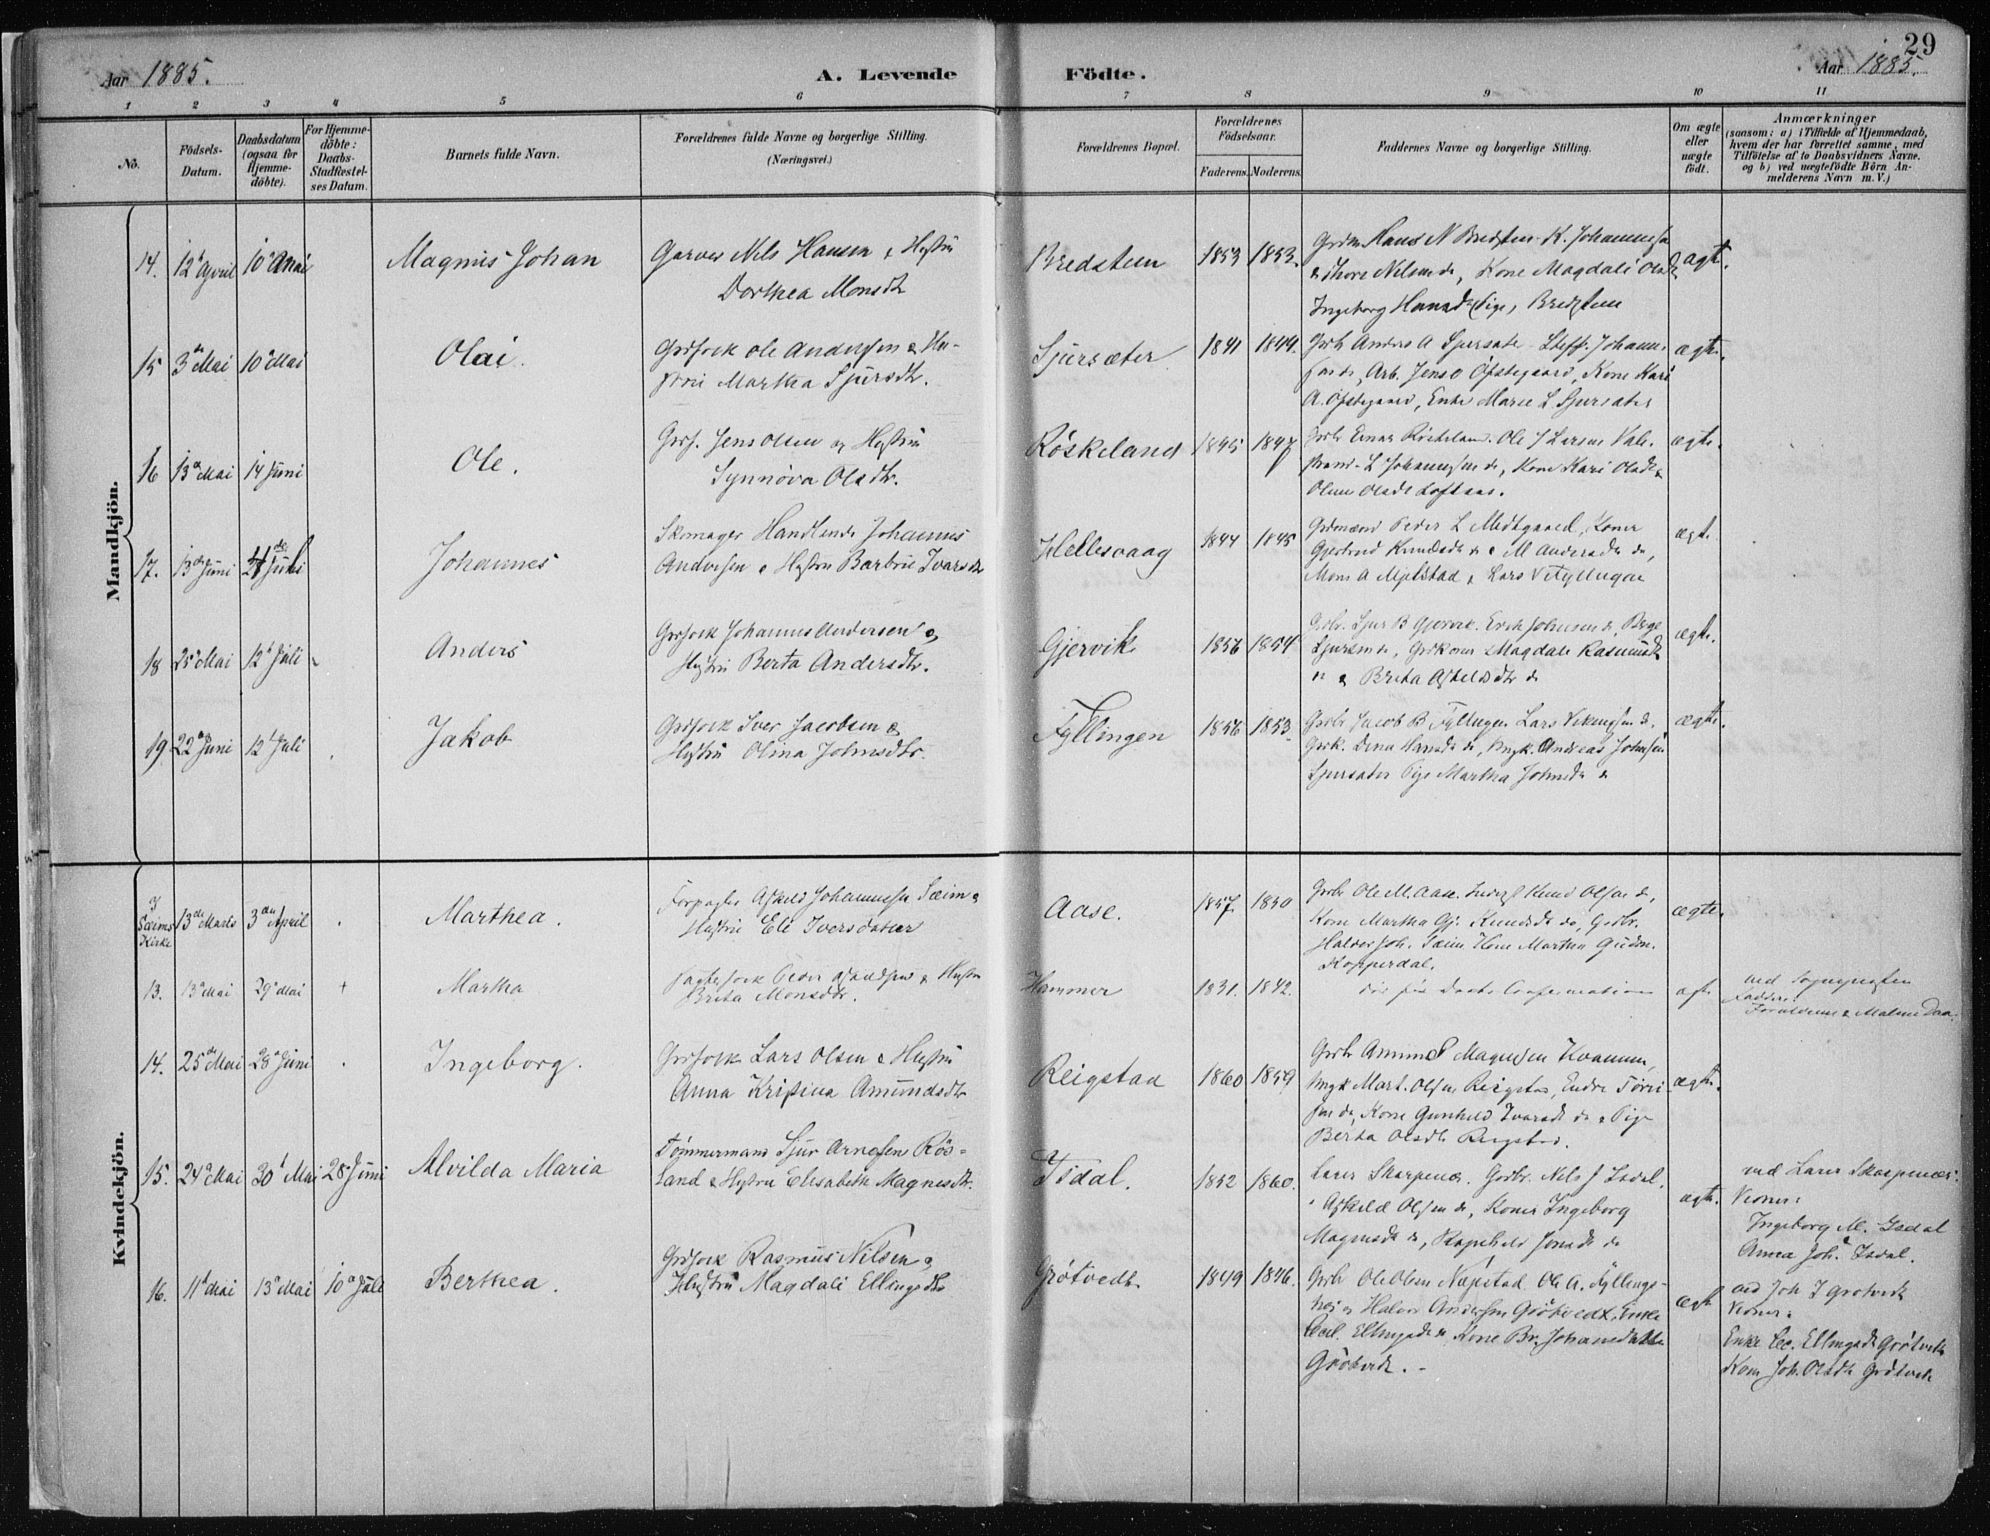 29
Aar 1885.
A. Levende
Födte.
Aar 1885.
1 2 3 4 5 6 7 8 9 10 11
No.
Födsels-
Datum.
Daabsdatum
(ogsaa for
Hjemme-
döbte).
For Hjemme-
döbte:
Daabs-
Stadfæstel-
ses Datum.
Barnets fulde Navn.
Forældrenes fulde Navne og borgerlige Stilling.
(Næringsvei.)
Forældrenes Bopæl.
Forældrenes
Födselsaar.
Faderens. Moderens.
Faddernes Navne og borgerlige Stilling.
Om ægte
eller
uægte
födt.
Anmærkninger
(saasom: a) i Tilfælde af Hjemmedaab,
hvem der har forrettet samme, med
Tilföielse af to Daabsvidners Navne.
og b) ved uægtefödte Börn An-
melderens Navn m. V.)
Mandkjön.
14. 12 April 10 Mai
Magnus Johan
Garver Nils Hansen & Hustru
Dorthea Monsdtr
Bredstein
1853 1853.
Hans N Bredstein K. Johannes
Kone Magdali Olsdtr
Ingeborg Hansdtr Pige, Bredstein
ægte.
15 3de Mai 10 Mai
Olai.
Grdfolk Ole Andersen & Hu-
stru Martha Sjursdtr.
Sjursæter
1841 1849.
Grbr Anders A Sjursæter Steff. Johann-
Arb. Jens O Øfstegaard, Kone Kari
A. Øfstegaard, Enke Marie L Sjursæter
ægte.
16 13de Mai 14 Juni
Ole.
Grdf. Jens Olsen og Hustru
Synnöva Olsdtr.
Röskeland
1845 1847
Grbr Einar Röskeland. Ole J Larsen Vale-
strand L Johannessen do, Kone Kari Olsdtr &
Oline Olsdtr Loftaas.
ægte.
17. 13de Juni 4de Juli
Johannes
Skomager Handlende Johannes
Andersen & Hustru Barbru Ivarsdtr
Hellesvaag
1844 1845
Grdmænd Peder L Midtgaard, Koner
Gjertrud Knudsdtr do & M Andersdtr do,
Mons A Mjelstad & Lars V Fyllingen
ægte
18 25 Mai 12 Juli
Anders
Grdfolk Johannes Andersen &
Hustru Berta Andersdtr.
Gjervik
1856 1854
Grbr. Sjur B Gjervik. Erik Johnsen do, Børge
Sjursen do, Grdkoner Magdali Rasmusdtr
& Brita Askeldsdtr do
ægte.
19 22 Juni 12 Juli
Jakob
Grdfolk Iver Jacobsen &
Hustru Olina Johnsdtr.
Fyllingen
1856 1853.
Grbr Jacob B Fyllingen Lars Vikingsen do.
Grdk. Dina Hansdtr do, Ungk. Andreas Johnsen
Sjursæter Pige Martha Johnsdtr do
ægte.
Kvindekjön.
I
Sæims
Kirke
13de Marts 3die April
Marthea.
Forpagter Askeld Johannesen Sæim &
Hustru Eli Iversdatter
Aase.
1857 1850
Grbr Ole M. Aase. Knud Olsen do,
Kone Martha Gj. Knudsdtr do, Grdbr.
Halvor Joh. Sæim Kone Martha Gudm.
Kopperdal.
ægte.
13. 13 Mai 29 Mai +
Martha
Peder & Hustru
Brita Monsdtr.
Hammer
1831. 1842.
död før Daabs Confirmation
ægte
ved Sognepresten
Faddere:
Forældrene & Malene Daa.
14. 25de Mai 28 Juni
Ingeborg.
Grdfolk Lars Olsen & Hustru
Anna Kristina Amundsdtr
Reigstad
1860 1859
Grbr Amund Magnesen Kvamme,
Ungk Mart. Olsen Reigstad, Endre
do, Kone Gunhild Ivarsdtr do & Pige
Berta Olsdtr Reigstad.
ægte.
15. 24 Mai 30 Mai 28 Juni
Alvilda Maria
Tömmermand Sjur Arnesen Rös-
land & Hustru Elisabeth Magnesdtr.
Isdal.
1852 1860.
Lærer Skarpenæs. Grdbr. Nils J Isdal.
Askeld Olsen do, Koner Ingeborg
Magnesdtr do, Ragnhild Jonsdtr do
ægte.
ved Lærer Skarpenæs.
Vidner:
Ingeborg M. Isdal
Anna Joh. Isdal.
16. 11 Mai 13 Mai 10 Juli
Berthea.
Grdfolk Rasmus Nilsen &
Hustru Magdali Ellingsdtr
Grötvedt.
1849 1846.
Grbr Ole Olsen Næpstad Ole A. Fyllings-
nes & Halvor Andersen Grötvedt, Enke
Cecil. Ellingsdtr do Kone Br. Johansdatter
Grötvedt.
ægte
ved Joh I Grotvedt
Vidner:
Enke Cec. Ellingsdtr Grötvedt
Kone Joh. Olsdtr Grötvedt